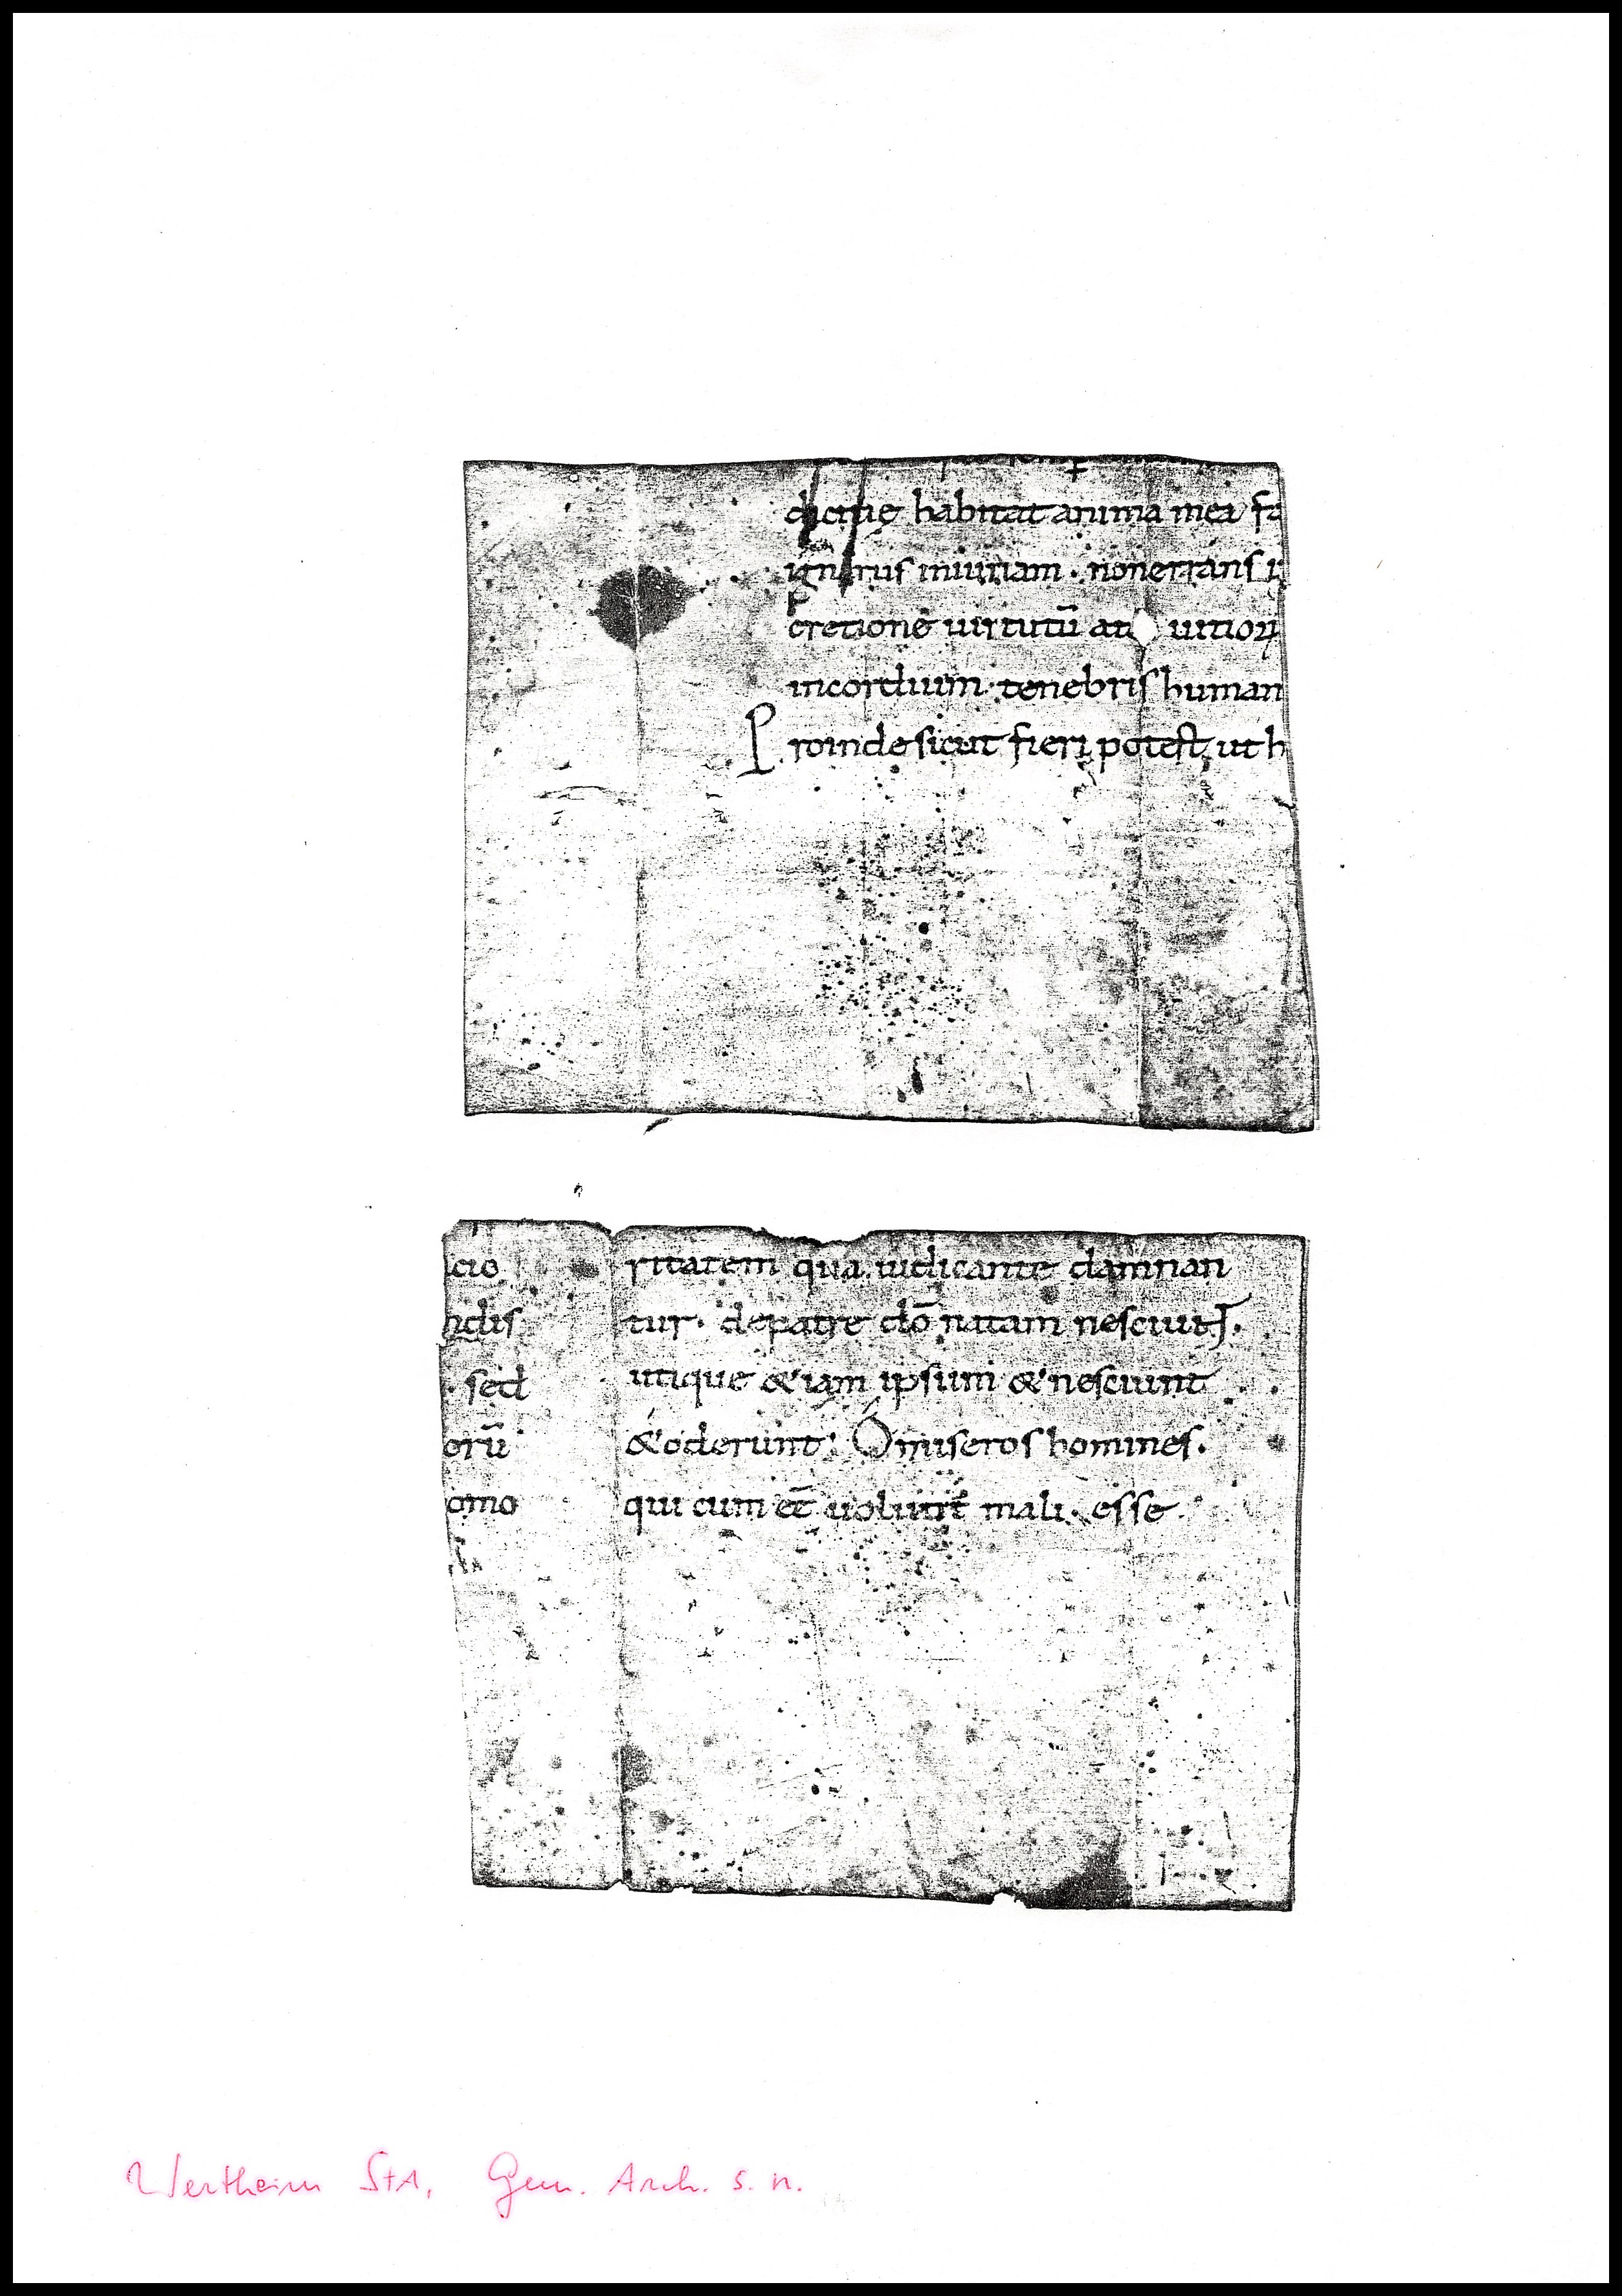 dicitie habitat anima mea fa
ignarus iniuriam · non errans i
cretione uirtutū at uitioꝝ
in cordium · tenebris human
Proinde sicut fieri potest, ut h
cio
ndis
· sed
orū
omo
ritatem qua iudicante damnan
tur · de patre dō natam nesciunt ·
utique &iam ipsum & nesciunt
& oderunt · O miseros homines ·
qui cum eē uolunt mali · esse
Wertheim StA, Gem. Arch. s. n.